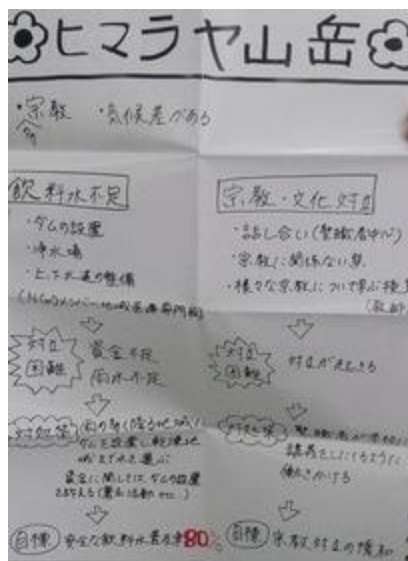 ヒマラヤ山岳
・宗教 ・気候差がある
飲料水不足
・ダムの設置
・浄水場
・上下水道の整備
対立
困難
資金不足
雨水不足
対処策
雨の多く降る地域に
ダムを設置し乾燥地
域まで水を運ぶ
資金に関しては、ダムの設置
を訴える(署名活動 etc.)
目標
安全な飲料水普及率80%
宗教・文化対立
・話し合い(聖職者中心)
・宗教に関係ない
・様々な宗教について学ぶ
対立
困難
対立が起きる
対処策
聖職者が
講義をしにくるように
働きかける
目標
宗教対立の緩和